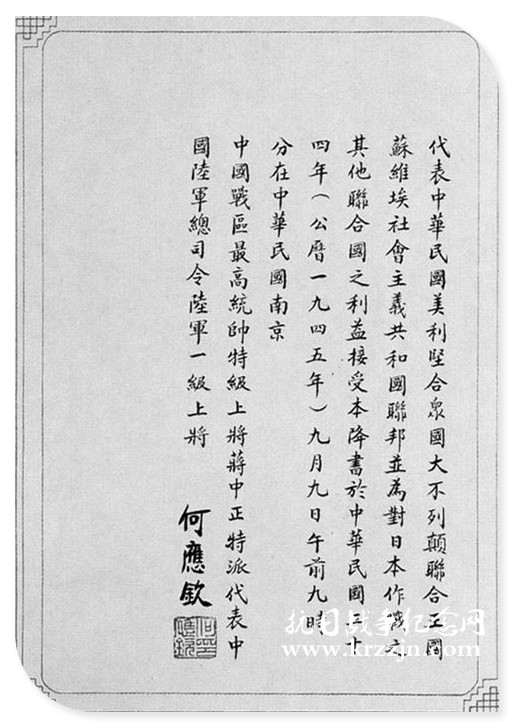 代表中華民國美利堅合眾國大不列顛聯合王國
蘇維埃社會主義共和國聯邦並為對日本作戰之
其他聯合國之利益接受本降書於中華民國三十
四年(公曆一九四五年)九月九日午前九時
分在中華民國南京
中國戰區最高統帥特級上將蔣中正特派代表中
國陸軍總司令陸軍一級上將
何應欽
何應欽印
抗日战争纪念网
www.krzzjn.com